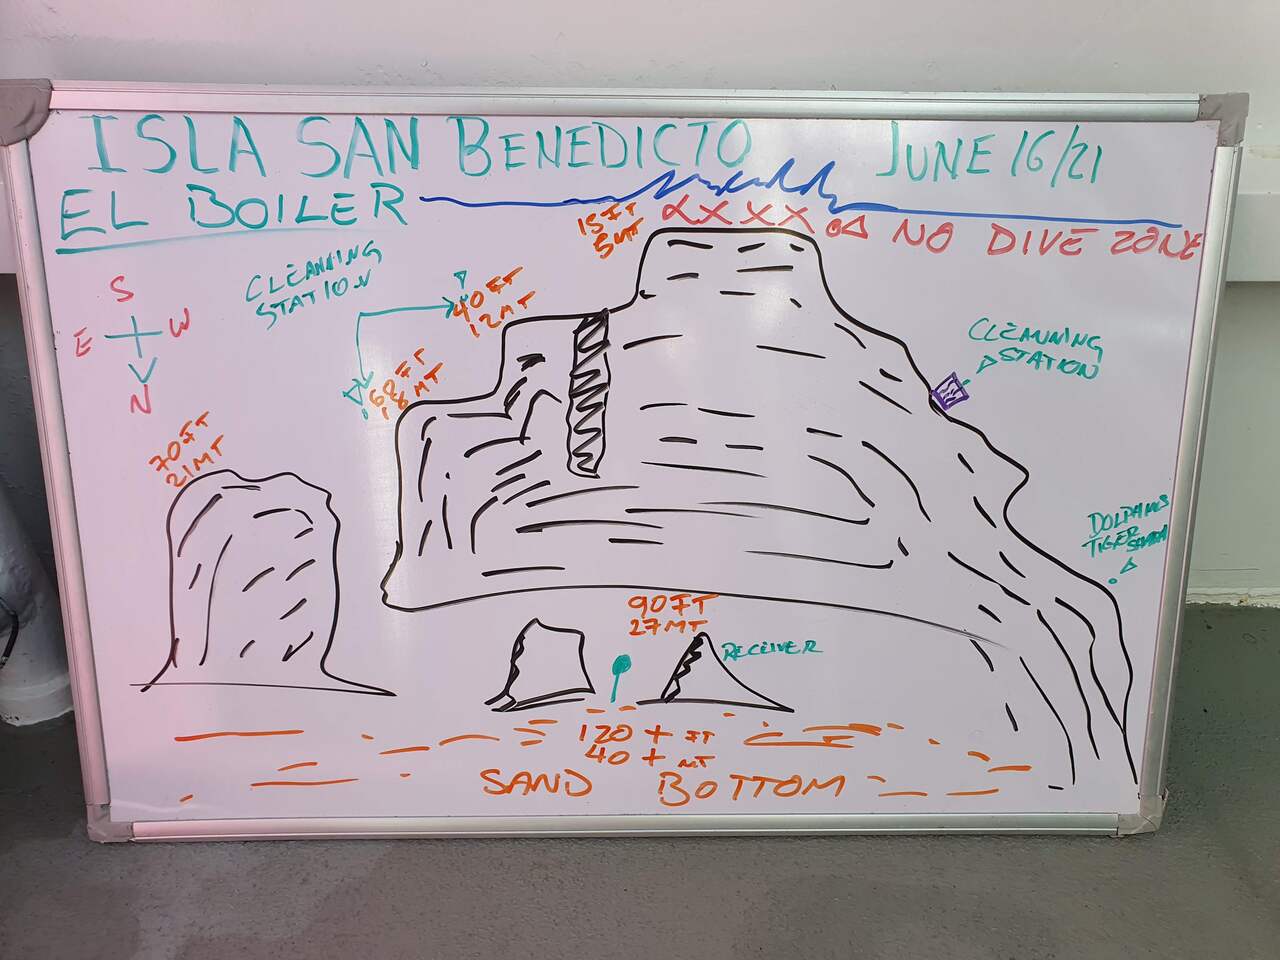 ISLA SAN BENEDICTO JUNE 16/21
EL BOILER
15 FT
5 MT
XXXX NO DIVE ZONE
CLEANNING
STATION
S
E W
N
40 FT
12 MT
CLEANNING
STATION
FT
18 MT
70 FT
21 MT
DOLPHINS
TIGER
90 FT
27 MT
RECEIVER
120 + FT
40 + MT
SAND BOTTOM